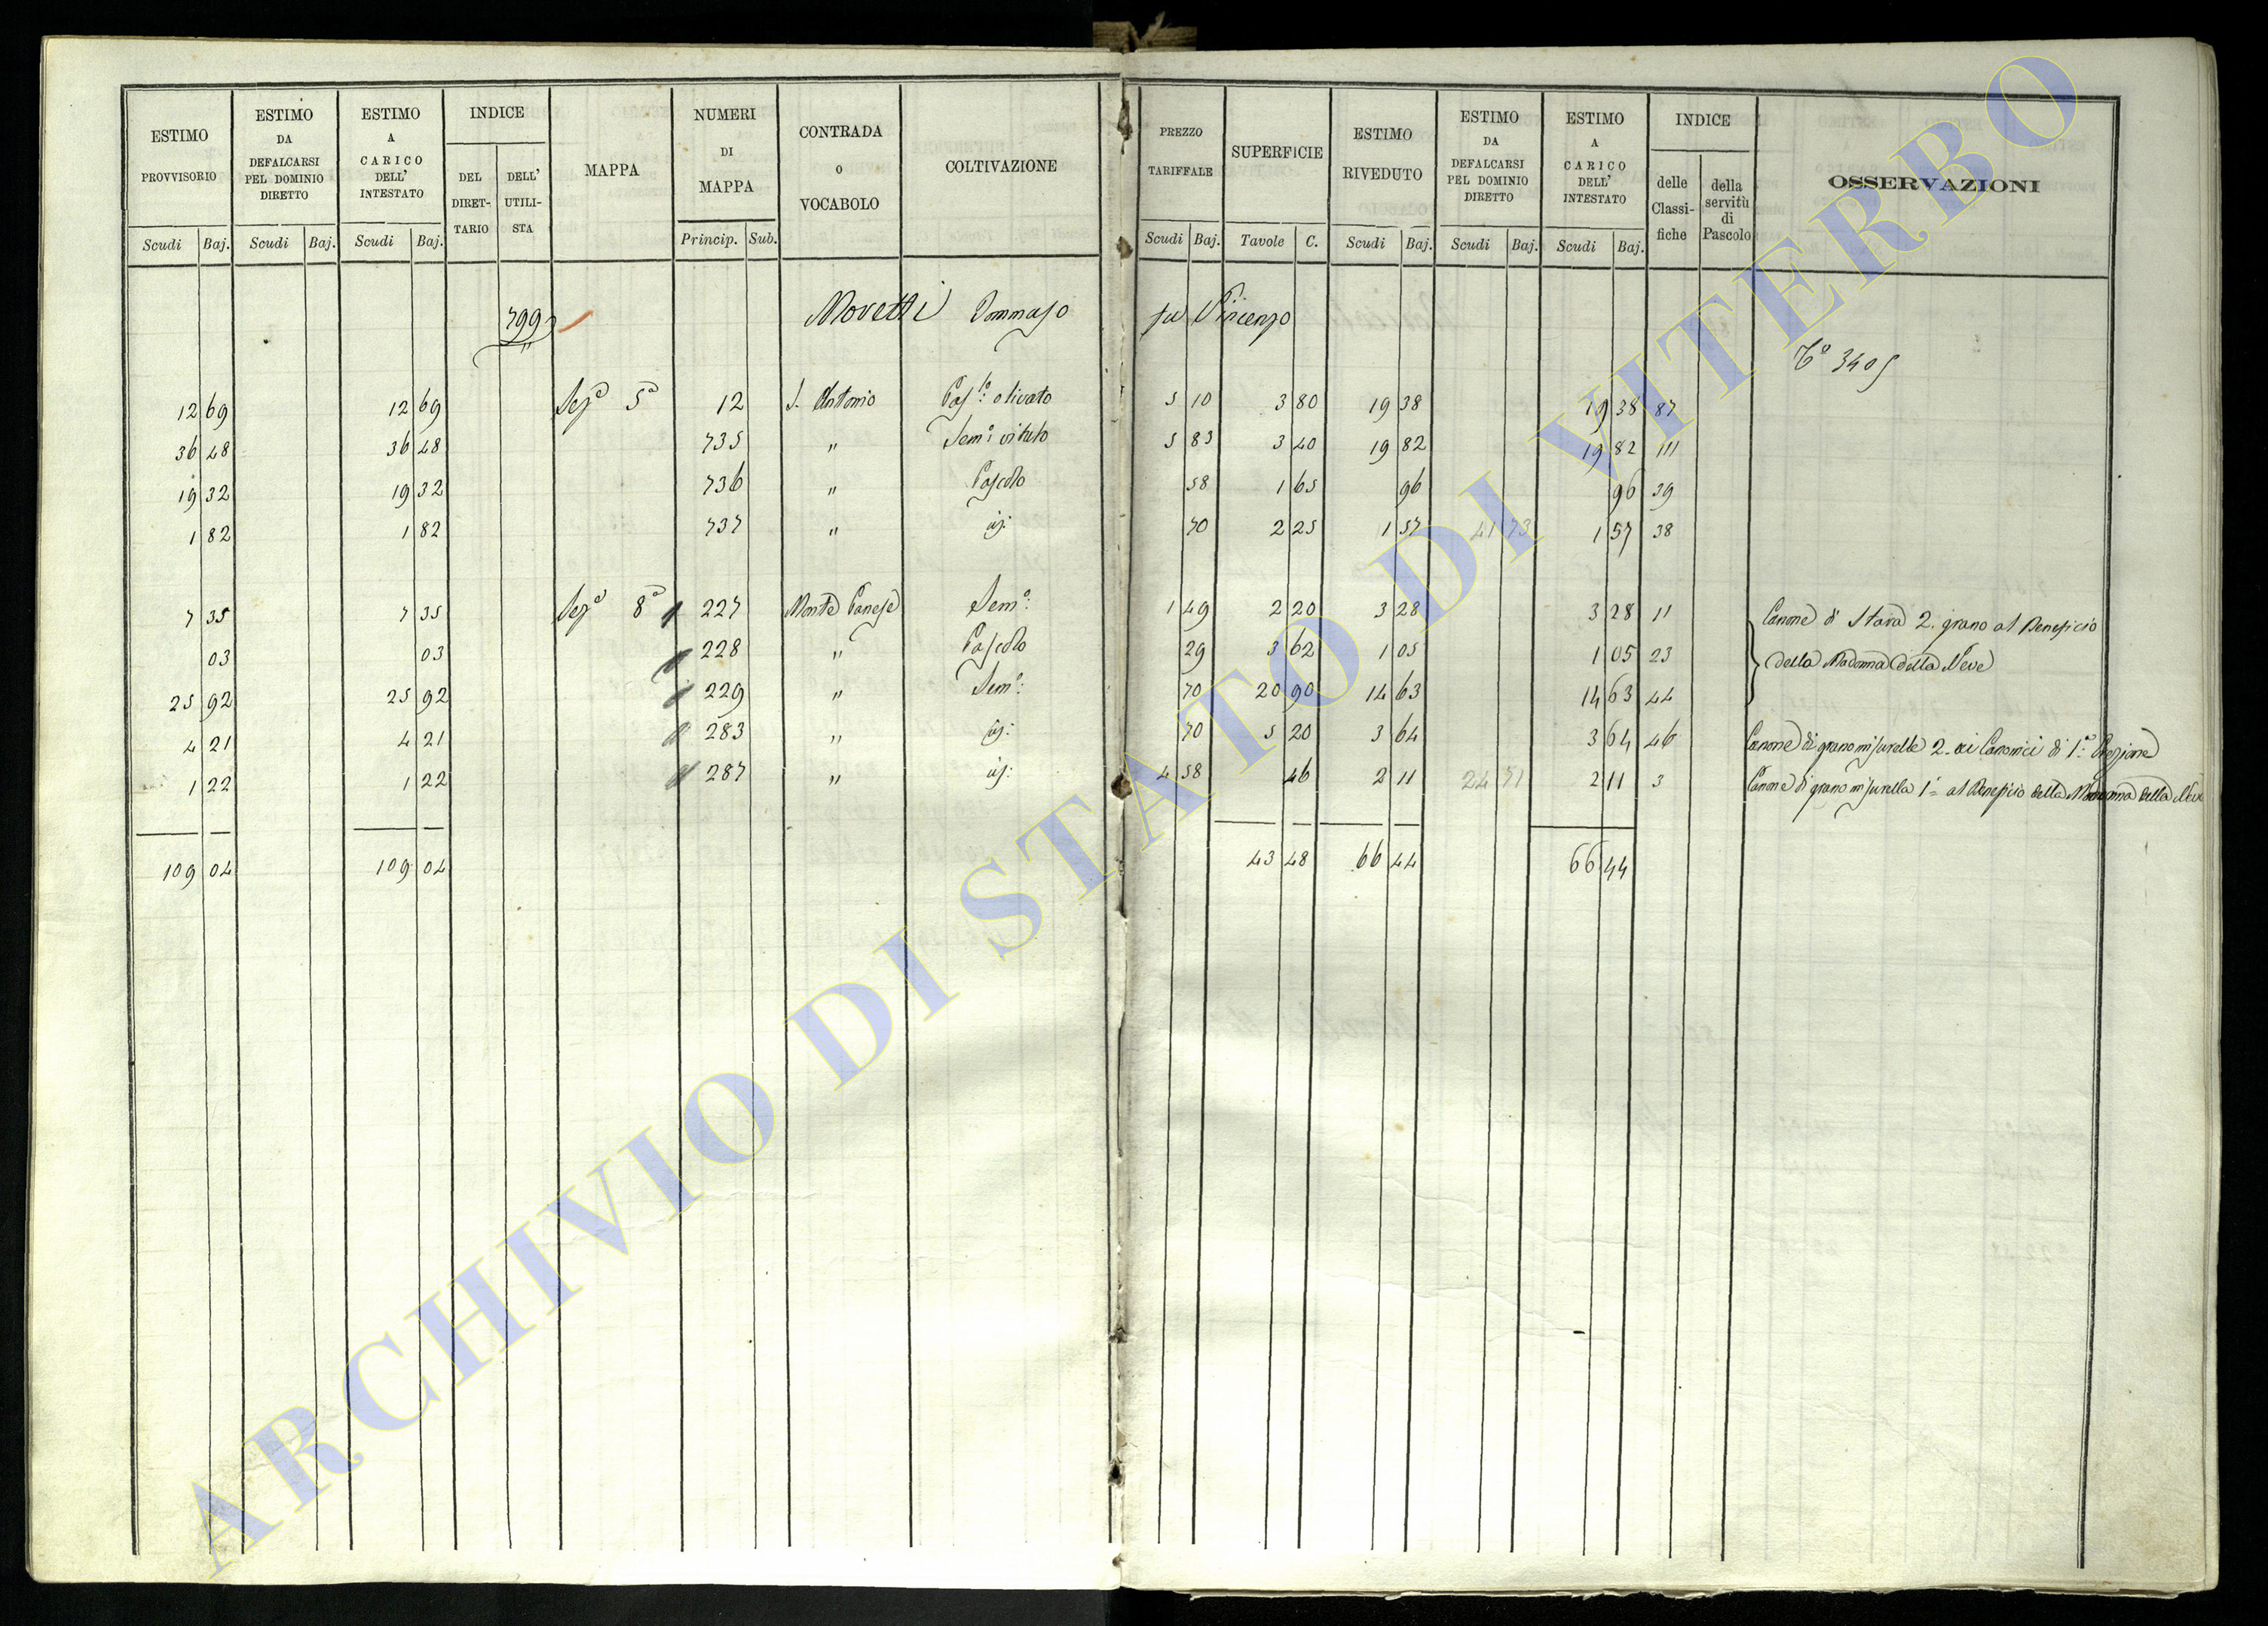 ESTIMO PROVVISORIO Scudi Baj. | ESTIMO DA DEFALCARSI PEL DOMINIO DIRETTO Scudi Baj. | ESTIMO A CARICO DELL' INTESTATO Scudi Baj. | INDICE DEL DIRET-TARIO | DELL' UTILI-STA | MAPPA | NUMERI DI MAPPA Princip. Sub. | CONTRADA O VOCABOLO | COLTIVAZIONE | PREZZO TARIFFALE Scudi Baj. | SUPERFICIE Tavole C. | ESTIMO RIVEDUTO Scudi Baj. | ESTIMO DA DEFALCARSI PEL DOMINIO DIRETTO Scudi Baj. | ESTIMO A CARICO DELL' INTESTATO Scudi Baj. | INDICE delle Classi-fiche | della servitù di Pascolo | OSSERVAZIONI
799 Moretti Tommaso fu Vincenzo
C° 3405
12 69 12 69 Sez.a 5a 12 S. Antonio Pas.lo olivato 5 10 3 80 19 38 19 38 87
36 48 36 48 735 " Sem.o vitato 5 83 3 40 19 82 19 82 111
19 32 19 32 736 " Pascolo 58 1 65 96 96 39
1 82 1 82 737 " id: 70 2 25 1 57 41 73 1 57 38
7 35 7 35 Sez.a 8a 227 Monte Canese Sem.o: 1 49 2 20 3 28 3 28 11 Canone di Stara 2. grano al Beneficio
03 03 228 " Pascolo 29 3 62 1 05 1 05 23 della Madonna della Neve
25 92 25 92 229 " Sem.o: 70 20 90 14 63 14 63 44
4 21 4 21 283 " id: 70 5 20 3 64 3 64 46 Canone di grano misurelle 2. ai Canonici di 1.a Erezione
1 22 1 22 287 " id: 4 58 46 2 11 24 71 2 11 3 Canone di grano misurella 1 al Beneficio della Madonna della Neve
109 04 109 04 43 48 66 44 66 44
ARCHIVIO DI STATO DI VITERBO